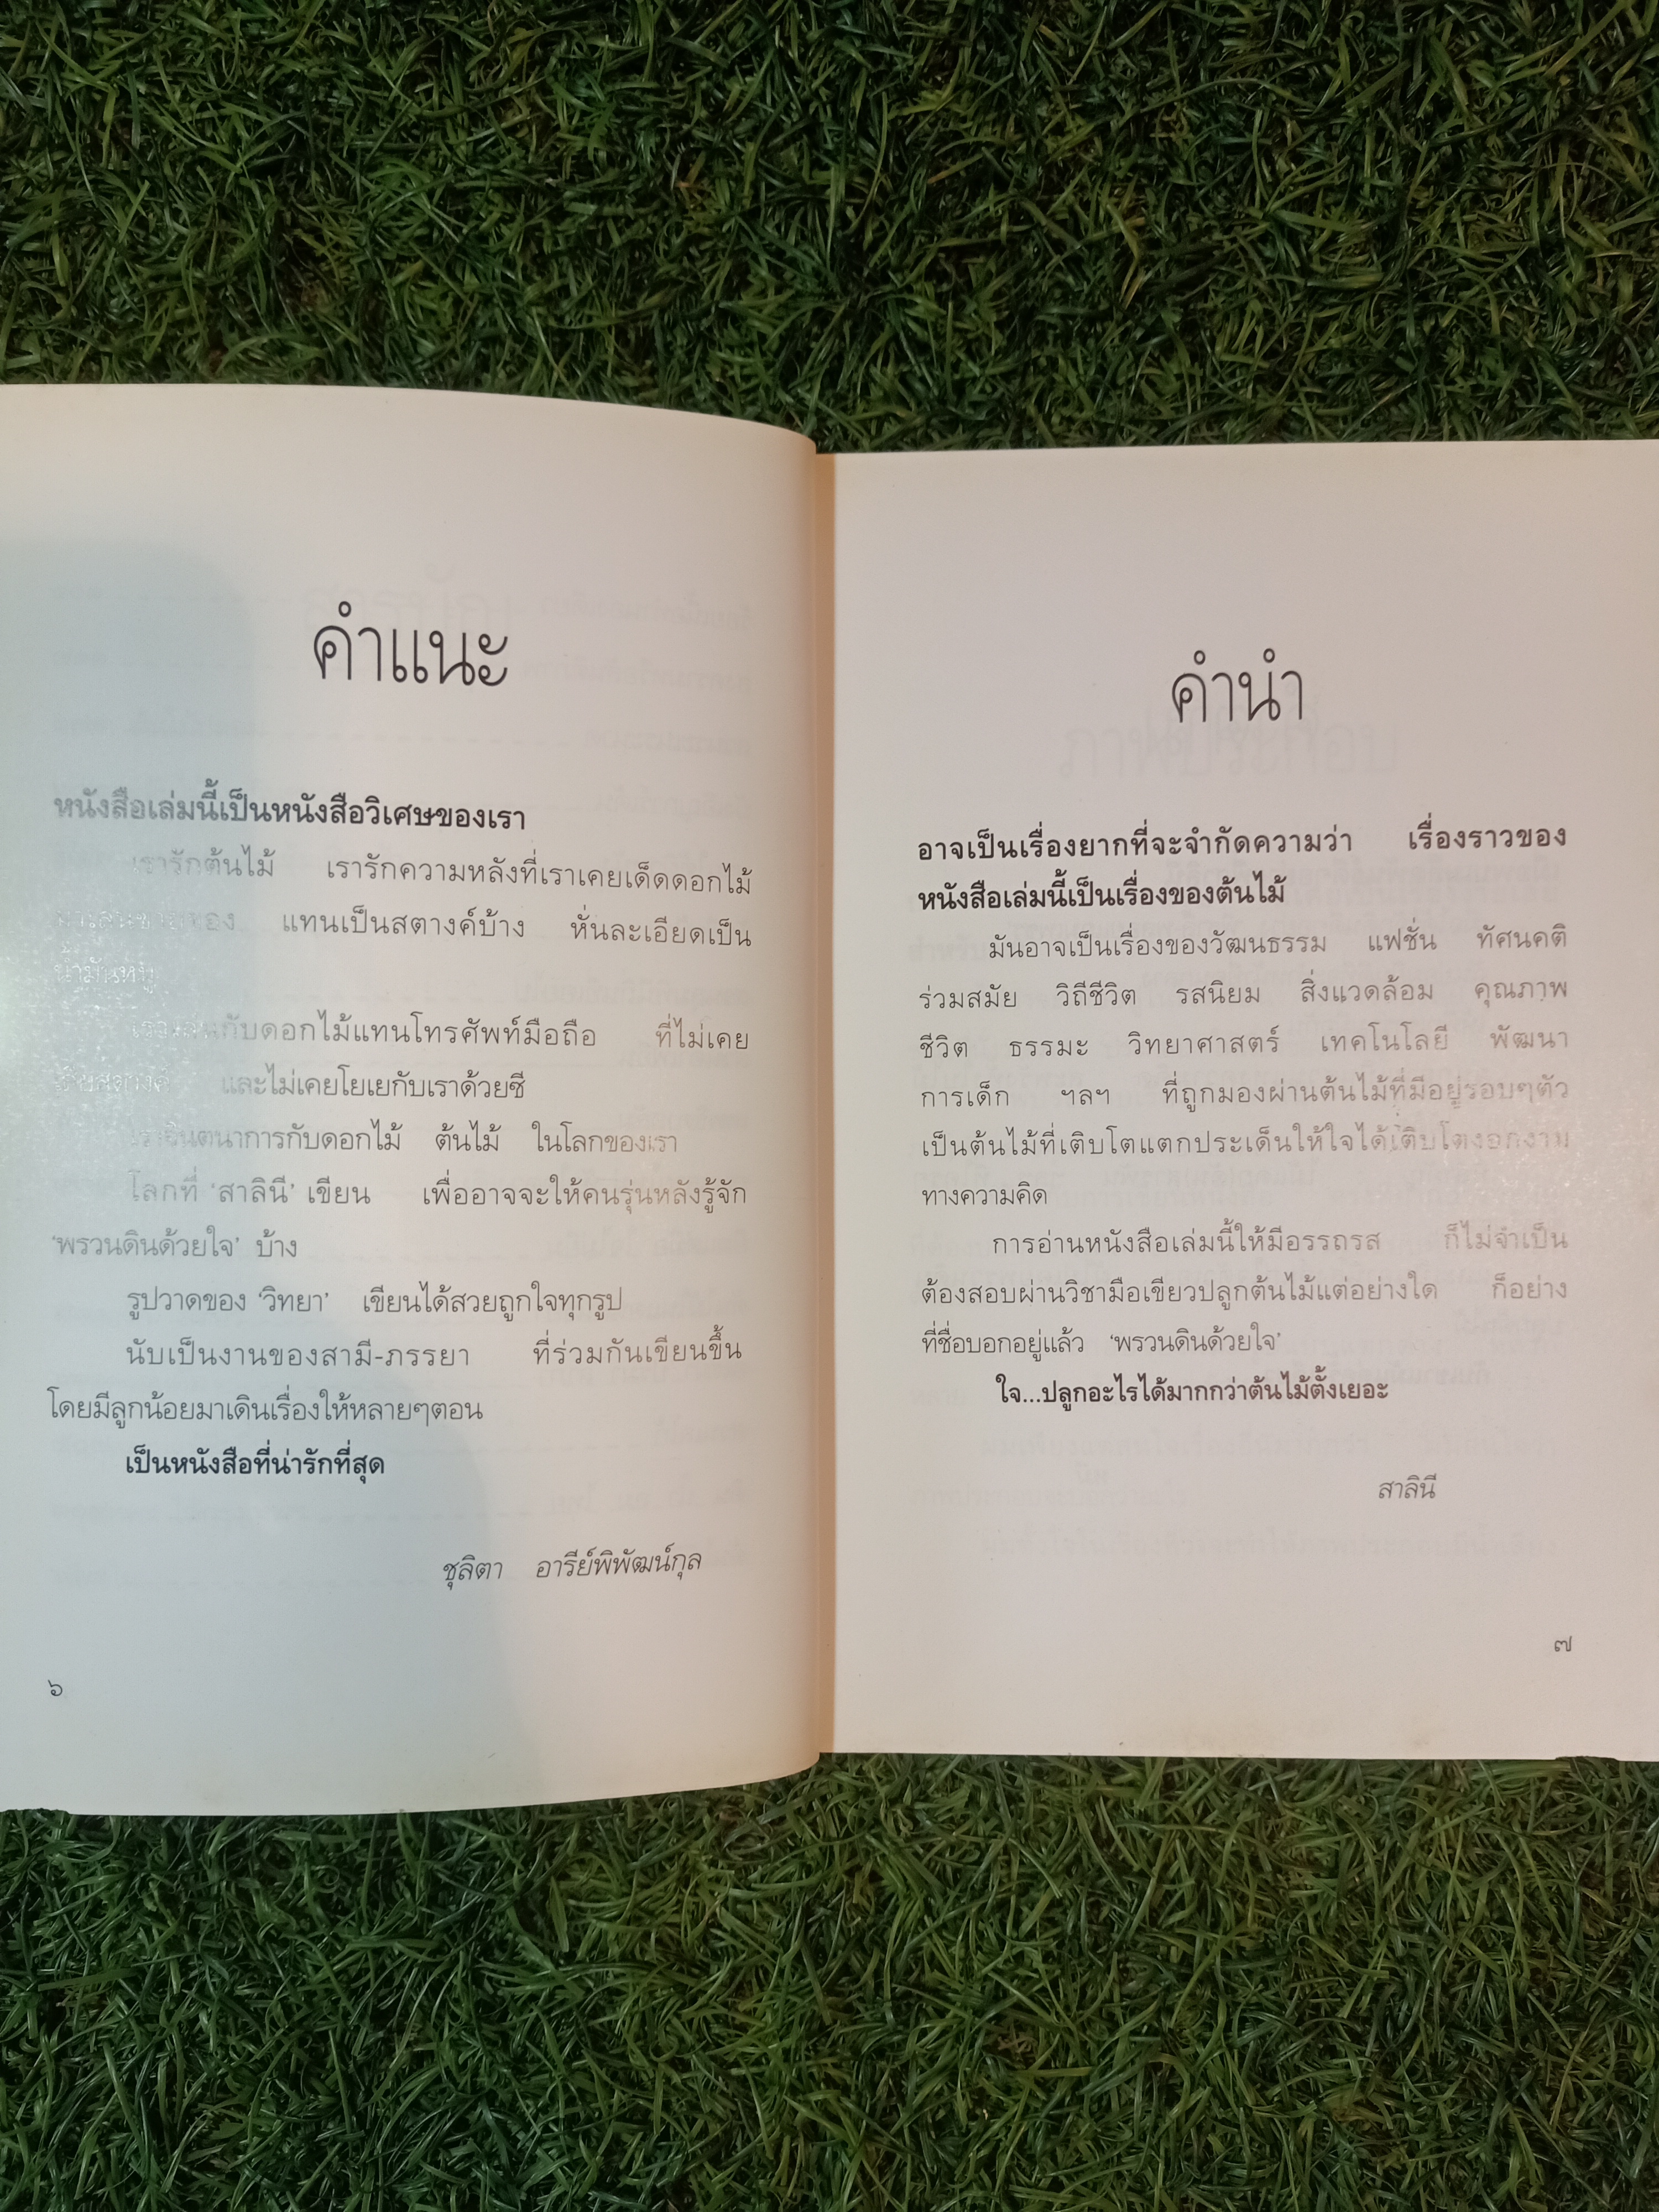 คำแนะ
หนังสือเล่มนี้เป็นหนังสือวิเศษของเรา
เรารักต้นไม้ เรารักความหลังที่เราเคยเด็ดดอกไม้
มาเล่นขายของ แทนเป็นสตางค์บ้าง หั่นละเอียดเป็น
น้ำมันหมู
เราเล่นกับดอกไม้แทนโทรศัพท์มือถือ ที่ไม่เคย
เสียสตางค์ และไม่เคยโยเยกับเราด้วยซี
เราจินตนาการกับดอกไม้ ต้นไม้ ในโลกของเรา
โลกที่ ‘สาลินี’ เขียน เพื่ออาจจะให้คนรุ่นหลังรู้จัก
‘พรวนดินด้วยใจ’ บ้าง
รูปวาดของ ‘วิทยา’ เขียนได้สวยถูกใจทุกรูป
นับเป็นงานของสามี-ภรรยา ที่ร่วมกันเขียนขึ้น
โดยมีลูกน้อยมาเดินเรื่องให้หลายๆตอน
เป็นหนังสือที่น่ารักที่สุด
ชุลิตา อารีย์พิพัฒน์กุล
๖
คำนำ
อาจเป็นเรื่องยากที่จะจำกัดความว่า เรื่องราวของ
หนังสือเล่มนี้เป็นเรื่องของต้นไม้
มันอาจเป็นเรื่องของวัฒนธรรม แฟชั่น ทัศนคติ
ร่วมสมัย วิถีชีวิต รสนิยม สิ่งแวดล้อม คุณภาพ
ชีวิต ธรรมะ วิทยาศาสตร์ เทคโนโลยี พัฒนา
การเด็ก ฯลฯ ที่ถูกมองผ่านต้นไม้ที่มีอยู่รอบๆตัว
เป็นต้นไม้ที่เติบโตแตกประเด็นให้ใจได้เติบโตงอกงาม
ทางความคิด
การอ่านหนังสือเล่มนี้ให้มีอรรถรส ก็ไม่จำเป็น
ต้องสอบผ่านวิชามือเขียวปลูกต้นไม้แต่อย่างใด ก็อย่าง
ที่ชื่อบอกอยู่แล้ว ‘พรวนดินด้วยใจ’
ใจ...ปลูกอะไรได้มากกว่าต้นไม้ตั้งเยอะ
สาลินี
๗